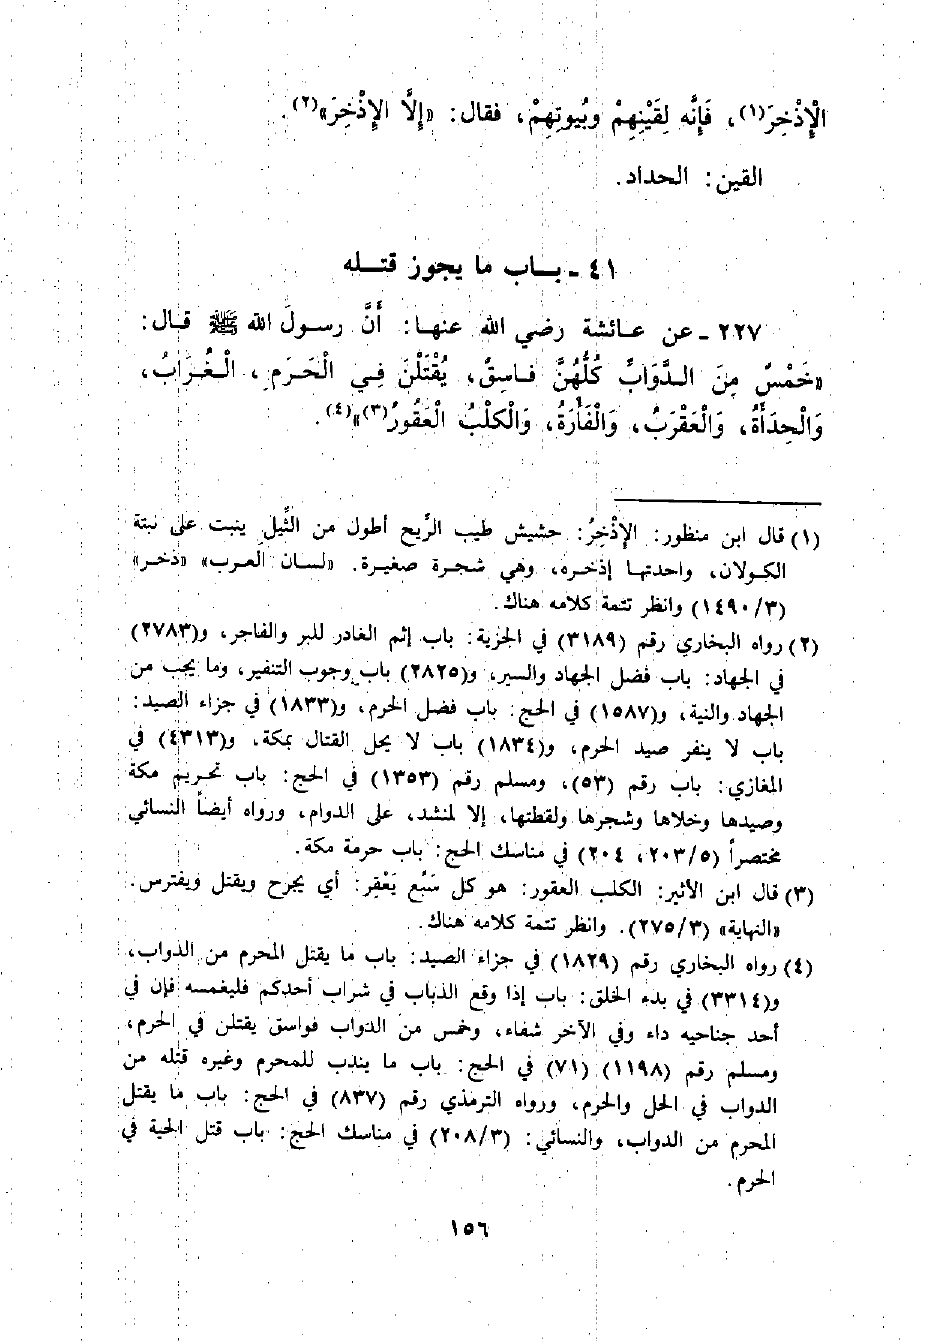 الْإِذْخِرَ(١)، فَإِنَّه لِقَيْنِهِمْ وبُيوتِهِمْ، فقال: «إِلَّا الإِذْخِرَ»(٢).
القين: الحداد.
٤١ ـ بـاب ما يجوز قتـله
٢٢٧ ـ عن عـائشة رضي الله عنهـا: أَنَّ رسـولَ الله ﷺ قـال:
«خَمْسٌ مِنَ الـدَّوَابِّ كُلُّهُنَّ فـاسِقٌ، يُقْتَلْنَ فِـي الْحَـرَمِ، الْغُـرَابُ،
وَالْحِدَأَةُ، وَالْعَقْرَبُ، وَالْفَأْرَةُ، وَالْكَلْبُ الْعَقُورُ(٣)»(٤).
(١) قال ابن منظور: الإِذْخِرُ: حشيش طيب الرِّيح أطول من الثِّيل ينبت على نبتة
الكـولان، واحدتهـا إذخـره، وهي شجـرة صغيـرة. «لسـان العـرب» «ذخـر»
(٣/١٤٩٠) وانظر تتمة كلامه هناك.
(٢) رواه البخاري رقم (٣١٨٩) في الجزية: باب إثم الغادر للبر والفاجر، و(٢٧٨٣)
في الجهاد: باب فضل الجهاد والسير، و(٢٨٢٥) باب وجوب التنفير، وما يجب من
الجهاد والنية، و(١٥٨٧) في الحج: باب فضل الحرم، و(١٨٣٣) في جزاء الصيد:
باب لا ينفر صيد الحرم، و(١٨٣٤) باب لا يحل القتال بمكة، و(٤٣١٣) في
المغازي: باب رقم (٥٣)، ومسلم رقم (١٣٥٣) في الحج: باب تحريم مكة
وصيدها وخلاها وشجرها ولقطتها، إلا لمنشد، على الدوام، ورواه أيضاً النسائي
مختصراً (٥/٢٠٣، ٢٠٤) في مناسك الحج: باب حرمة مكة.
(٣) قال ابن الأثير: الكلب العقور: هو كل سَبُع يَعْقِر: أي يجرح ويقتل ويفترس.
«النهاية» (٣/٢٧٥). وانظر تتمة كلامه هناك.
(٤) رواه البخاري رقم (١٨٢٩) في جزاء الصيد: باب ما يقتل المحرم من الدواب،
و(٣٣١٤) في بدء الخلق: باب إذا وقع الذباب في شراب أحدكم فليغمسه فإن في
أحد جناحيه داء وفي الآخر شفاء، وخمس من الدواب فواسق يقتلن في الحرم،
ومسلم رقم (١١٩٨) (٧١) في الحج: باب ما يندب للمحرم وغيره قتله من
الدواب في الحل والحرم، ورواه الترمذي رقم (٨٣٧) في الحج: باب ما يقتل
المحرم من الدواب، والنسائي: (٣/٢٠٨) في مناسك الحج: باب قتل الحية في
الحرم.
١٥٦